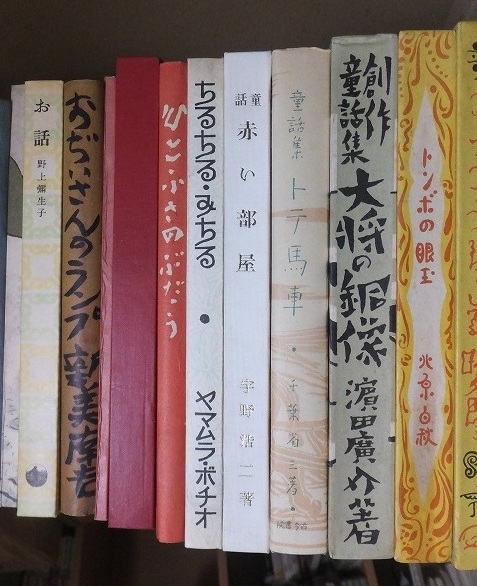 お話
野上彌生子
おぢいさんのランプ
新美南吉
ひとふさのぶだう
ちるちる・みちる
ヤマムラ・ボチオ
童話
赤い部屋
宇野浩二著
童話集
トテ馬車
千葉省三著
創作
童話集
大将の銅像
濱田廣介著
トンボの眼玉
北原白秋